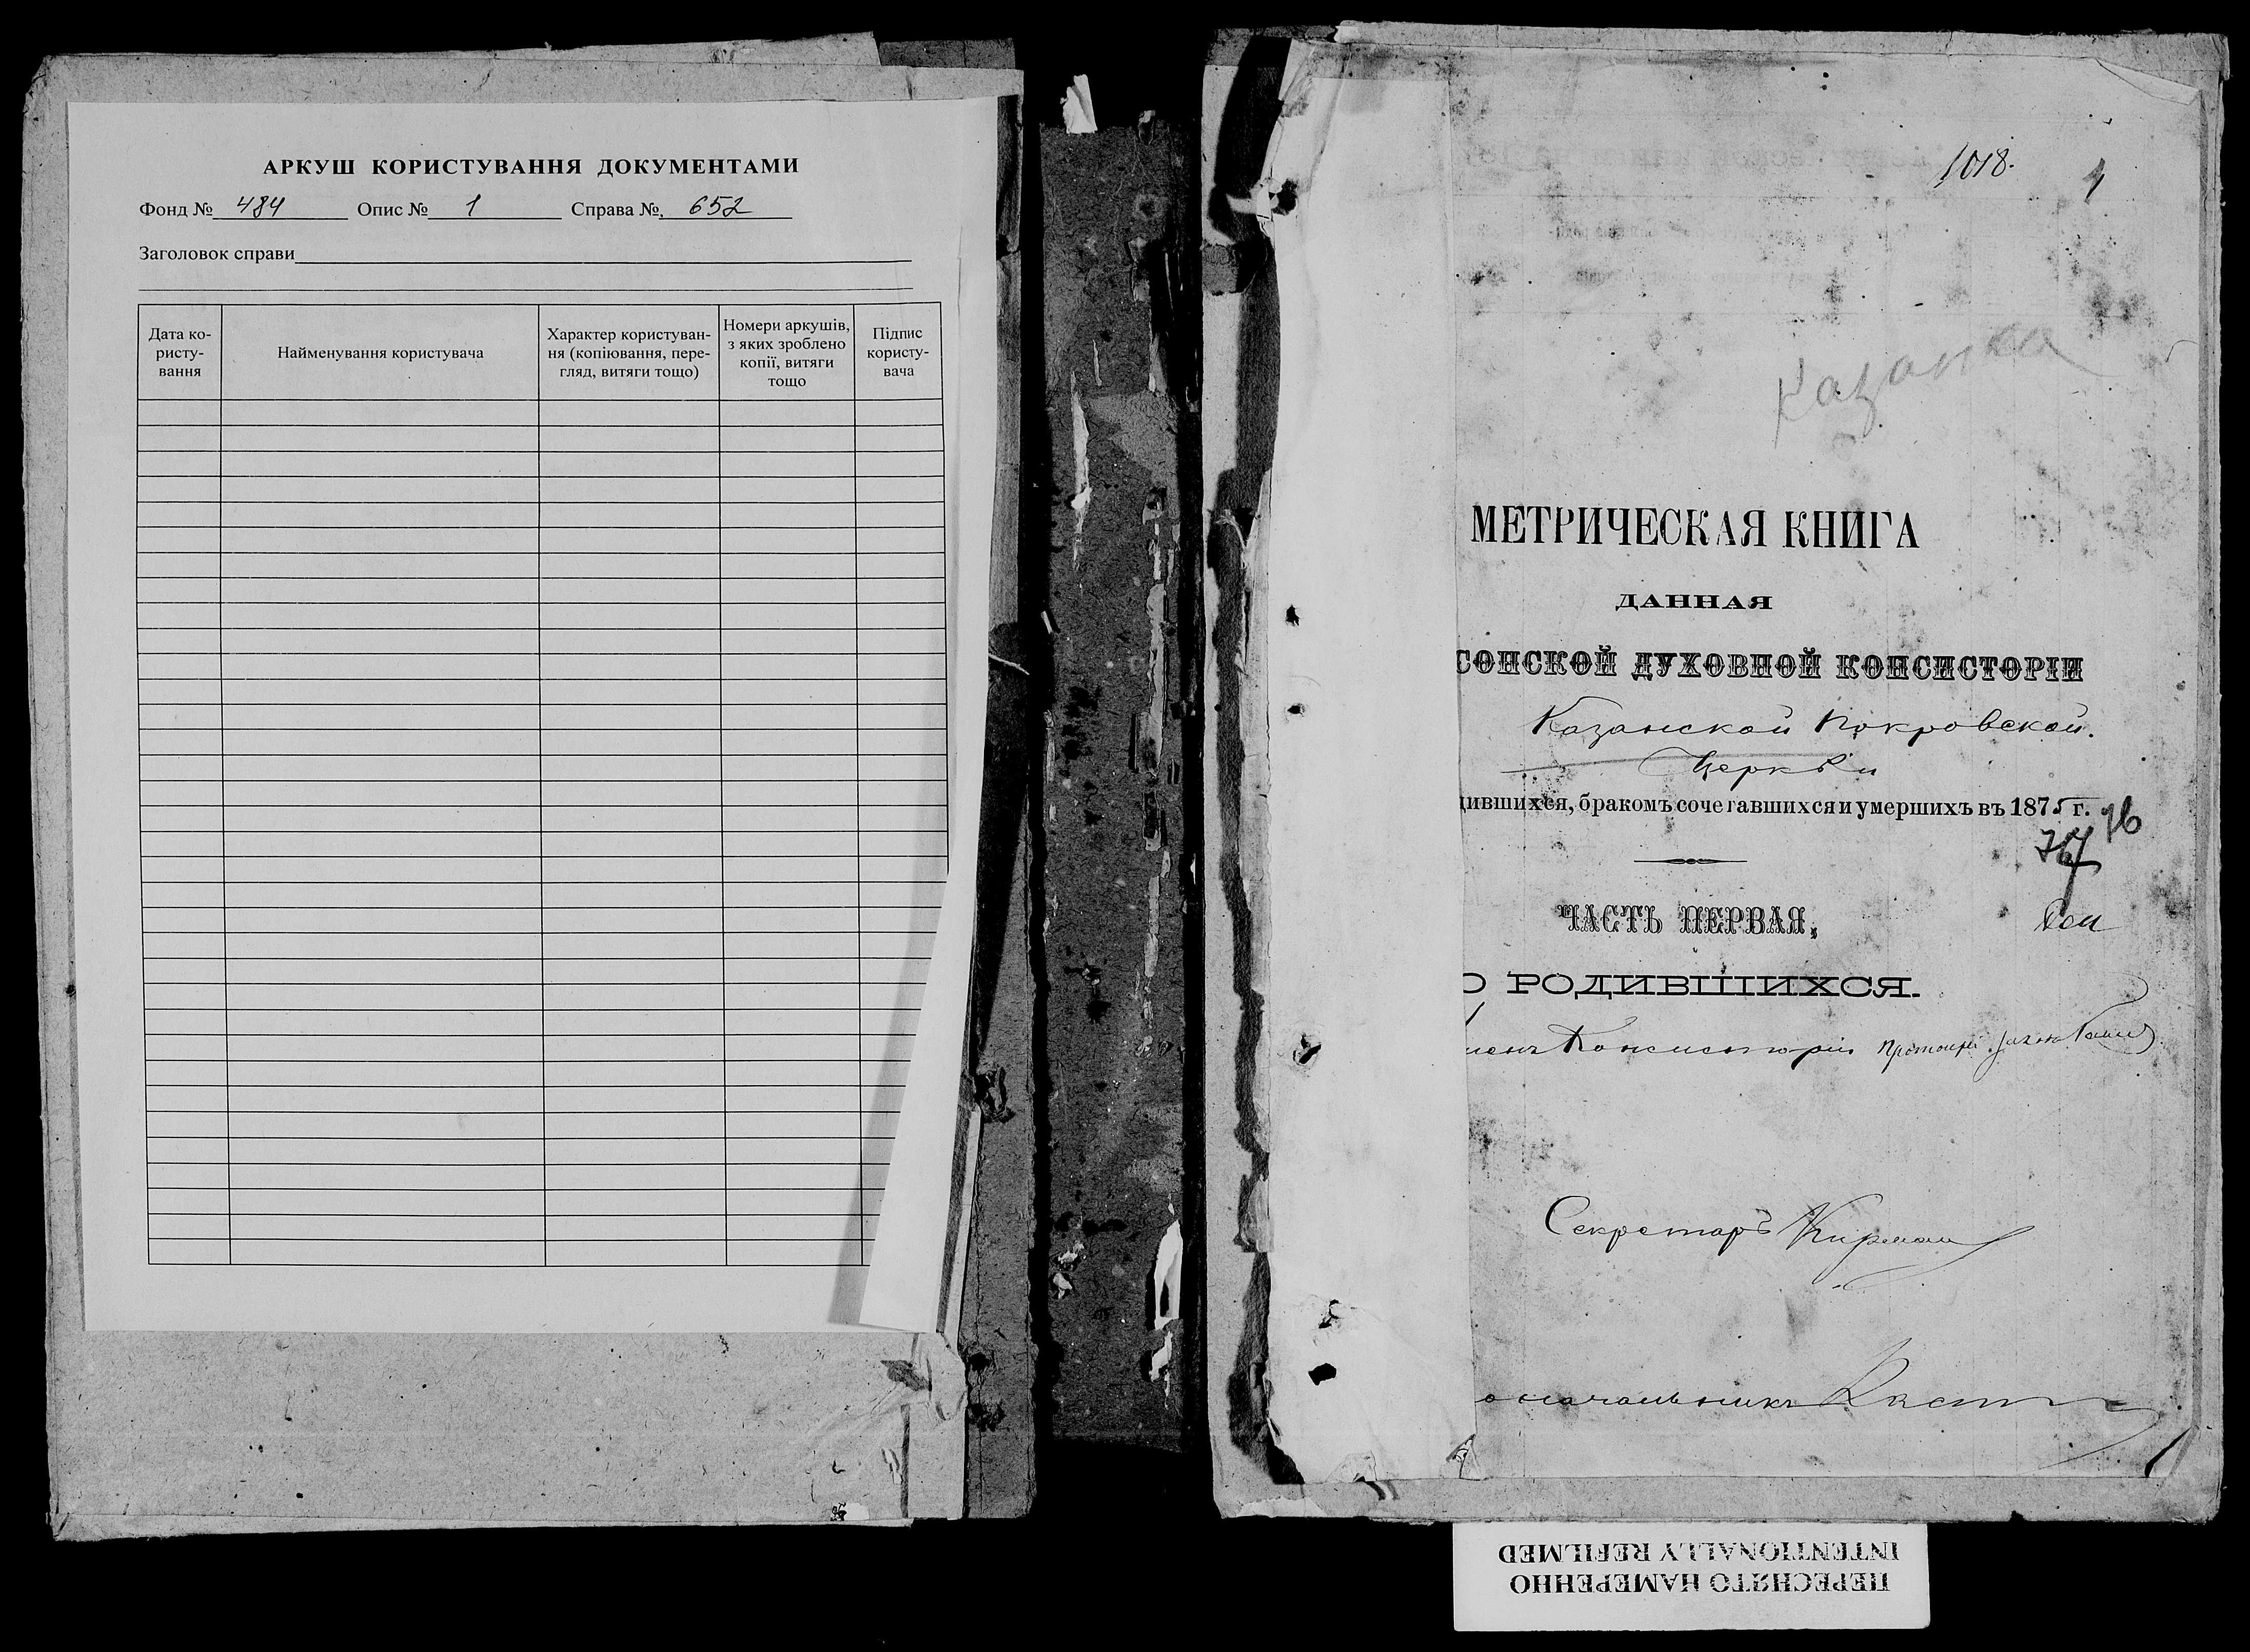 АРКУШ КОРИСТУВАННЯ ДОКУМЕНТАМИ
Фонд № 484 Опис № 1 Справа № 652
Заголовок справи
Дата ко-
ристу-
вання
Найменування користувача
Характер користуван-
ня (копіювання, пере-
гляд, витяги тощо)
Номери аркушів,
з яких зроблено
копії, витяги
тощо
Підпис
користу-
вача
1018.
1
Казанка
МЕТРИЧЕСКАЯ КНИГА
ДАННАЯ
СОНСКОЙ ДУХОВНОЙ КОНСИСТОРІИ
Казанской Покровской.
Церкви
дившихся, бракомъ сочетавшихся и умершихъ въ 1875 г.
76
ЧАСТЬ ПЕРВАЯ,
О РОДИВШИХСЯ.
ленъ Консисторіи Протоіерей
Секретарь
оначальникъ
ПЕРЕСНЯТО НАМЕРЕННО
INTENTIONALLY REFILMED